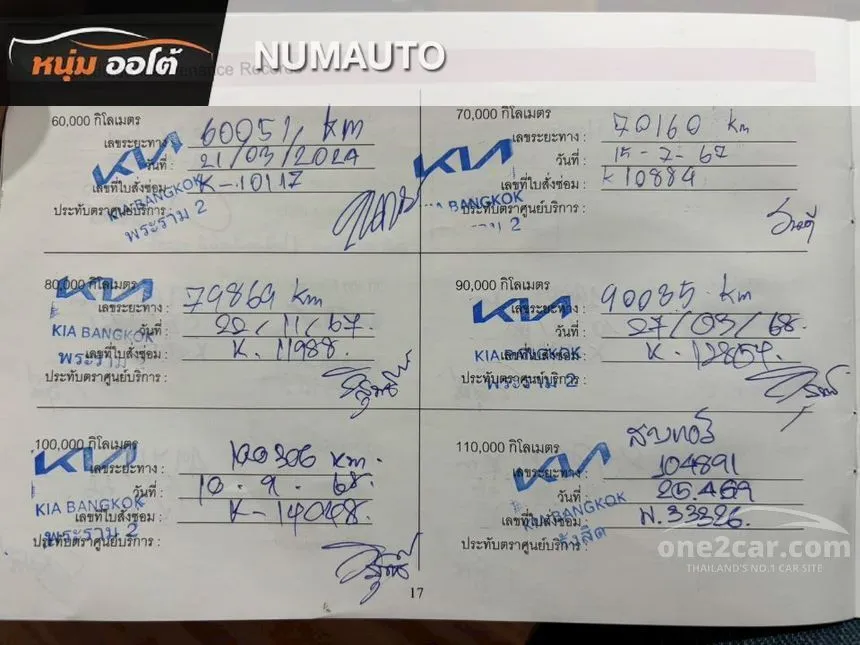 หนุ่ม ออโต้
NUMAUTO
60,000 กิโลเมตร
เลขระยะทาง : 60051 km
วันที่ : 21/03/2024
เลขที่ใบสั่งซ่อม : K-10117
ประทับตราศูนย์บริการ :
KIA
KIA BANGKOK
พระราม 2
70,000 กิโลเมตร
เลขระยะทาง : 70160 km
วันที่ : 15-7-67
เลขที่ใบสั่งซ่อม : K10884
ประทับตราศูนย์บริการ :
KIA
BANGKOK
2
80,000 กิโลเมตร
เลขระยะทาง : 79869 km
วันที่ : 22/11/67.
เลขที่ใบสั่งซ่อม : K. 11988.
ประทับตราศูนย์บริการ :
KIA
KIA BANGKOK
พระราม
90,000 กิโลเมตร
เลขระยะทาง : 90035 km
วันที่ : 27/03/68.
เลขที่ใบสั่งซ่อม : K. 12854.
ประทับตราศูนย์บริการ :
KIA
KIA BANGKOK
พระราม 2
100,000 กิโลเมตร
เลขระยะทาง : 100306 km.
วันที่ : 10.9.68.
เลขที่ใบสั่งซ่อม : K-14048.
ประทับตราศูนย์บริการ :
KIA
KIA BANGKOK
พระราม 2
110,000 กิโลเมตร
เลขระยะทาง : 104891
วันที่ :
เลขที่ใบสั่งซ่อม : N.33826.
ประทับตราศูนย์บริการ :
KIA
KIA BANGKOK
รังสิต
17
one2car.com
THAILAND'S NO.1 CAR SITE